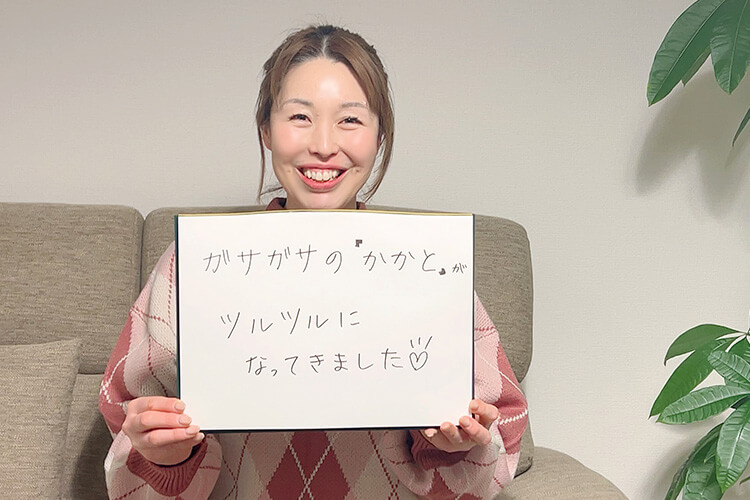 ガサガサの『かかと』が
ツルツルに
なってきました♡